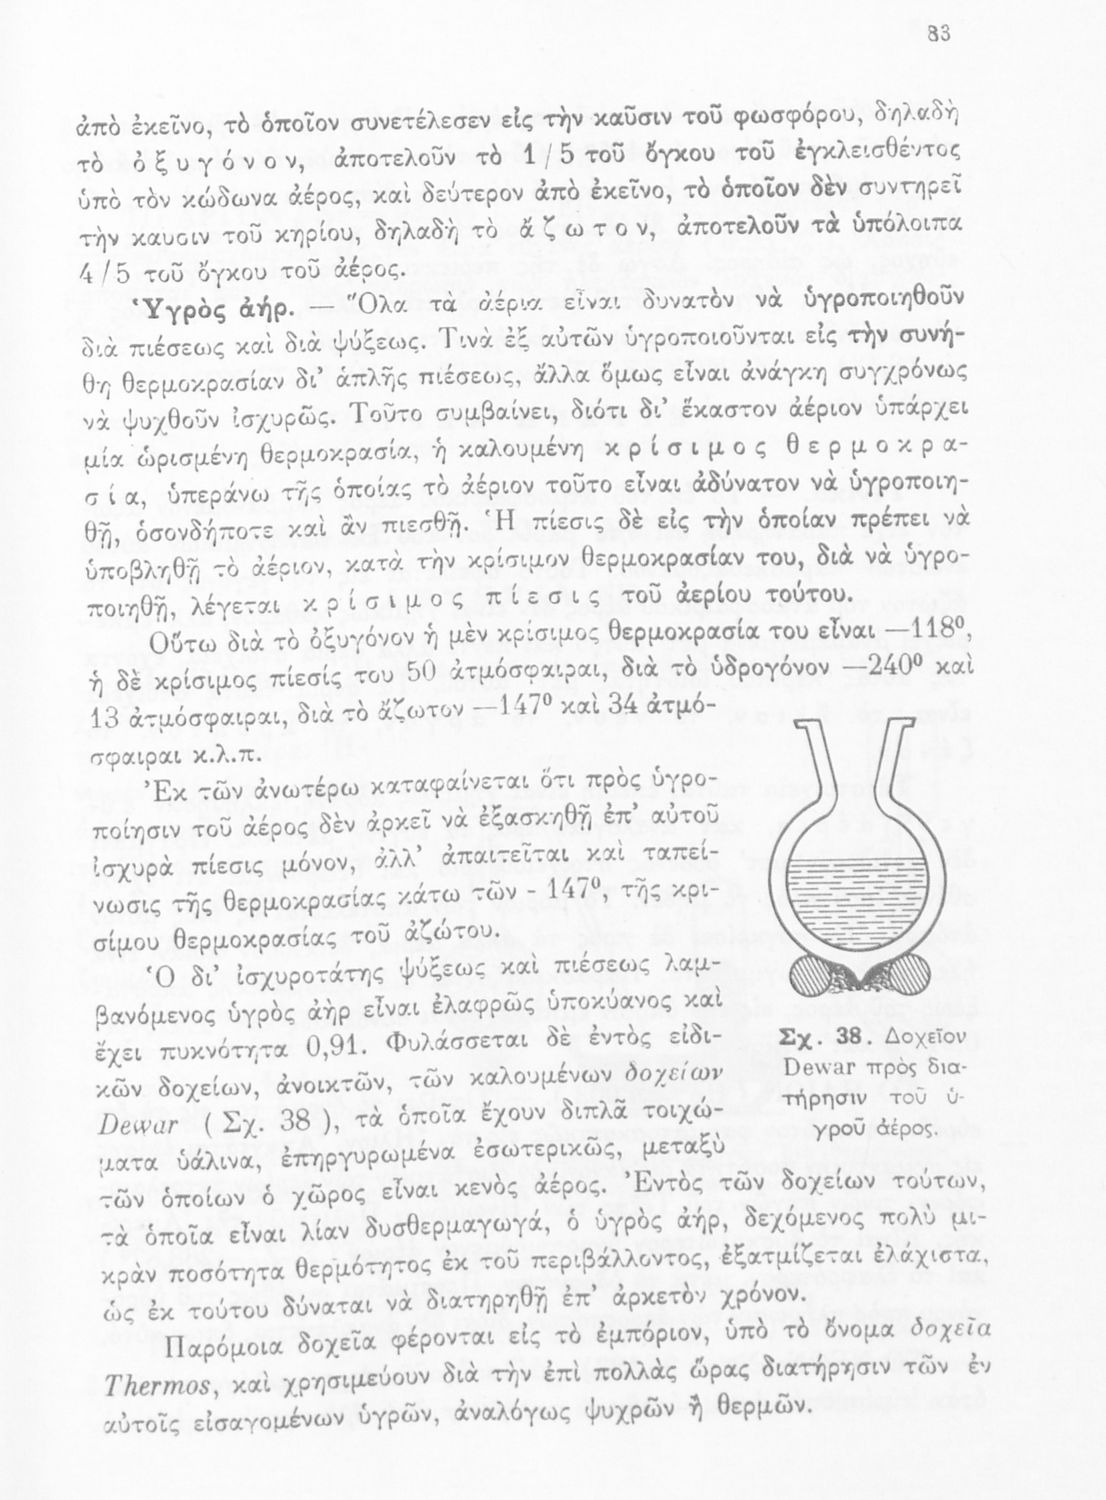 83
ἀπὸ ἐκεῖνο, τὸ ὁποῖον συνετέλεσεν εἰς τὴν καῦσιν τοῦ φωσφόρου, δηλαδὴ
τὸ ὀξυγόνον, ἀποτελοῦν τὸ 1/5 τοῦ ὄγκου τοῦ ἐγκλεισθέντος
ὑπὸ τὸν κώδωνα ἀέρος, καὶ δεύτερον ἀπὸ ἐκεῖνο, τὸ ὁποῖον δὲν συντηρεῖ
τὴν καυσιν τοῦ κηρίου, δηλαδὴ τὸ ἄζωτον, ἀποτελοῦν τὰ ὑπόλοιπα
4/5 τοῦ ὄγκου τοῦ ἀέρος.
Ὑγρὸς ἀήρ. — Ὅλα τὰ ἀέρια εἶναι δυνατὸν νὰ ὑγροποιηθοῦν
διὰ πιέσεως καὶ διὰ ψύξεως. Τινὰ ἐξ αὐτῶν ὑγροποιοῦνται εἰς τὴν συνή-
θη θερμοκρασίαν δι’ ἁπλῆς πιέσεως, ἄλλα ὅμως εἶναι ἀνάγκη συγχρόνως
νὰ ψυχθοῦν ἰσχυρῶς. Τοῦτο συμβαίνει, διότι δι’ ἕκαστον ἀέριον ὑπάρχει
μία ὡρισμένη θερμοκρασία, ἡ καλουμένη κρίσιμος θερμοκρα-
σία, ὑπεράνω τῆς ὁποίας τὸ ἀέριον τοῦτο εἶναι ἀδύνατον νὰ ὑγροποιη-
θῇ, ὁσονδήποτε καὶ ἂν πιεσθῇ. Ἡ πίεσις δὲ εἰς τὴν ὁποίαν πρέπει νὰ
ὑποβληθῇ τὸ ἀέριον, κατὰ τὴν κρίσιμον θερμοκρασίαν του, διὰ νὰ ὑγρο-
ποιηθῇ, λέγεται κρίσιμος πίεσις τοῦ ἀερίου τούτου.
Οὕτω διὰ τὸ ὀξυγόνον ἡ μὲν κρίσιμος θερμοκρασία του εἶναι —118⁰,
ἡ δὲ κρίσιμος πίεσίς του 50 ἀτμόσφαιραι, διὰ τὸ ὑδρογόνον —240⁰ καὶ
13 ἀτμόσφαιραι, διὰ τὸ ἄζωτον —147⁰ καὶ 34 ἀτμό-
σφαιραι κ.λ.π.
Ἐκ τῶν ἀνωτέρω καταφαίνεται ὅτι πρὸς ὑγρο-
ποίησιν τοῦ ἀέρος δὲν ἀρκεῖ νὰ ἐξασκηθῇ ἐπ’ αὐτοῦ
ἰσχυρὰ πίεσις μόνον, ἀλλ’ ἀπαιτεῖται καὶ ταπεί-
νωσις τῆς θερμοκρασίας κάτω τῶν - 147⁰, τῆς κρι-
σίμου θερμοκρασίας τοῦ ἀζώτου.
Ὁ δι’ ἰσχυροτάτης ψύξεως καὶ πιέσεως λαμ-
βανόμενος ὑγρὸς ἀὴρ εἶναι ἐλαφρῶς ὑποκύανος καὶ
ἔχει πυκνότητα 0,91. Φυλάσσεται δὲ ἐντὸς εἰδι-
κῶν δοχείων, ἀνοικτῶν, τῶν καλουμένων δοχείων
Dewar (Σχ. 38), τὰ ὁποῖα ἔχουν διπλᾶ τοιχώ-
ματα ὑάλινα, ἐπηργυρωμένα ἐσωτερικῶς, μεταξὺ
τῶν ὁποίων ὁ χῶρος εἶναι κενὸς ἀέρος. Ἐντὸς τῶν δοχείων τούτων,
τὰ ὁποῖα εἶναι λίαν δυσθερμαγωγά, ὁ ὑγρὸς ἀήρ, δεχόμενος πολὺ μι-
κρὰν ποσότητα θερμότητος ἐκ τοῦ περιβάλλοντος, ἐξατμίζεται ἐλάχιστα,
ὡς ἐκ τούτου δύναται νὰ διατηρηθῇ ἐπ’ ἀρκετὸν χρόνον.
Παρόμοια δοχεῖα φέρονται εἰς τὸ ἐμπόριον, ὑπὸ τὸ ὄνομα δοχεῖα
Thermos, καὶ χρησιμεύουν διὰ τὴν ἐπὶ πολλὰς ὥρας διατήρησιν τῶν ἐν
αὐτοῖς εἰσαγομένων ὑγρῶν, ἀναλόγως ψυχρῶν ἢ θερμῶν.
Σχ. 38. Δοχεῖον
Dewar πρὸς δια-
τήρησιν τοῦ ὑ-
γροῦ ἀέρος.